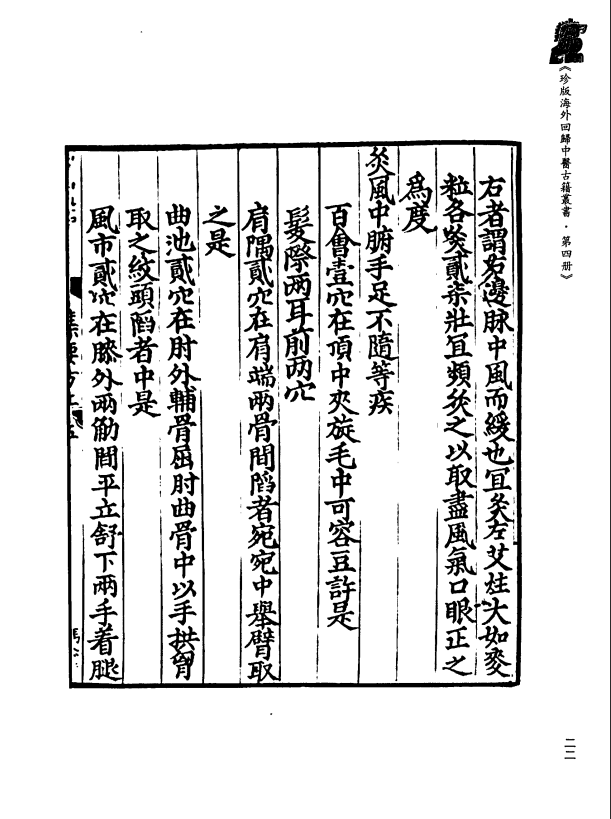 《珍版海外回歸中醫古籍叢書·第四册》
右者謂右邊脉中風而緩也冝灸左艾炷大如麥
粒各灸貳柒壯冝頻灸之以取盡風氣口眼正之
爲度
灸風中腑手足不隨等疾
百會壹穴在頂中央旋毛中可容豆許是
髮際兩耳前兩穴
肩隅貳穴在肩端兩骨間陷者宛宛中舉臂取
之是
曲池貳穴在肘外輔骨屈肘曲骨中以手拱胷
取之紋頭陷者中是
風市貳穴在膝外兩筋間平立舒下兩手着腿
集要方
二二